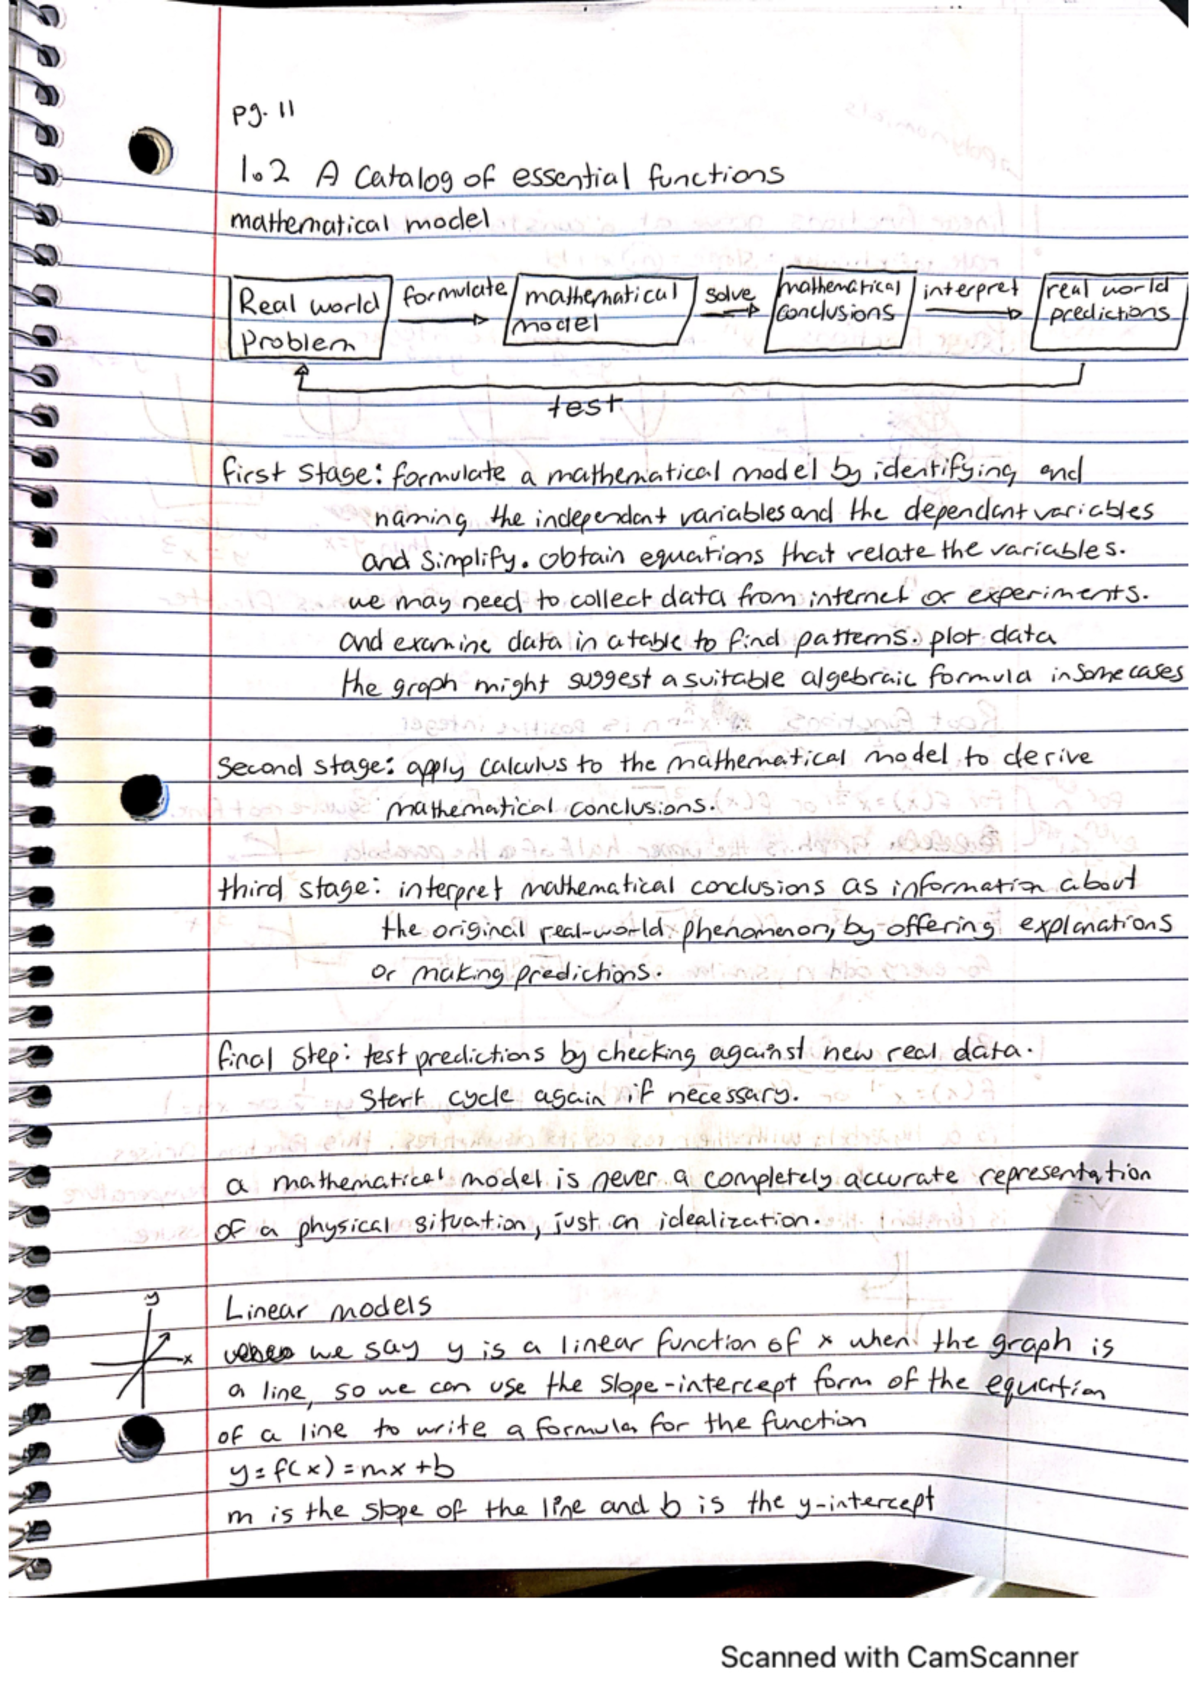 pg. 11
1.2 A Catalog of essential functions
mathematical model
Real world Problem formulate mathematical model solve mathematical conclusions interpret real world predictions
test
first stage: formulate a mathematical model by identifying and
naming the independant variables and the dependant variables
and simplify. obtain equations that relate the variables.
we may need to collect data from internet or experiments.
and examine data in a table to find patterns. plot data
the graph might suggest a suitable algebraic formula in some cases
second stage: apply calculus to the mathematical model to derive
mathematical conclusions.
third stage: interpret mathematical conclusions as information about
the original real-world phenomenon, by offering explanations
or making predictions.
final step: test predictions by checking against new real data.
start cycle again if necessary.
a mathematical model is never a completely accurate representation
of a physical situation, just an idealization.
y
x
Linear models
we say y is a linear function of x when the graph is
a line, so we can use the slope-intercept form of the equation
of a line to write a formula for the function
y = f(x) = mx + b
m is the slope of the line and b is the y-intercept
Scanned with CamScanner